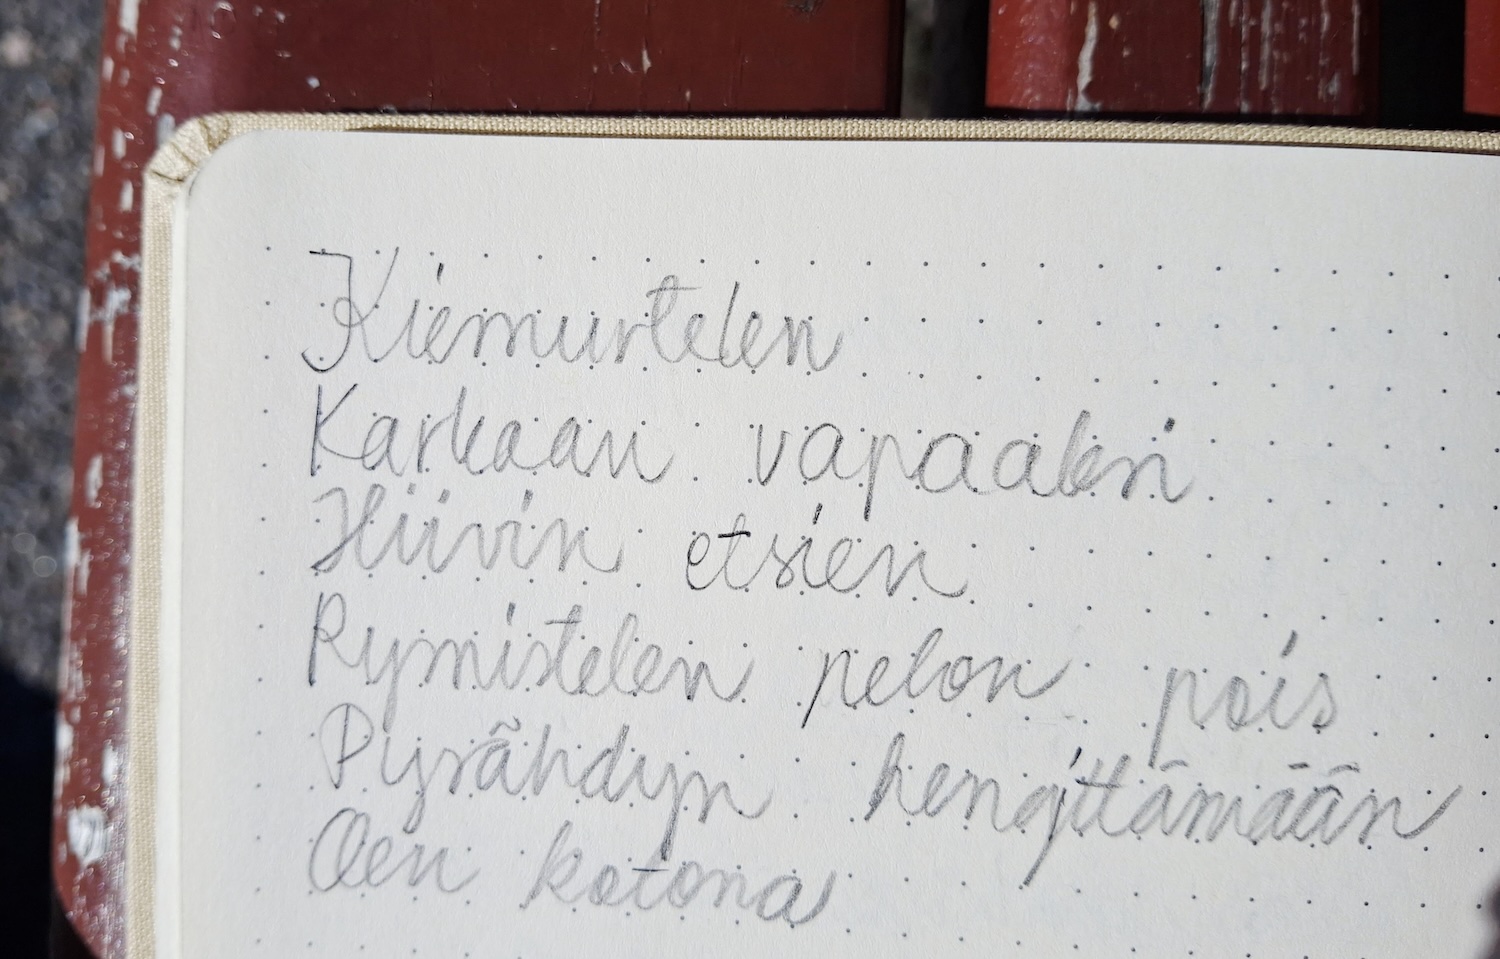 Kiemurtelen
Karkaan vapaaksi
Hiivin etsien
Rymistelen pelon pois
Pyrähdyn hengittämään
Oen kotona